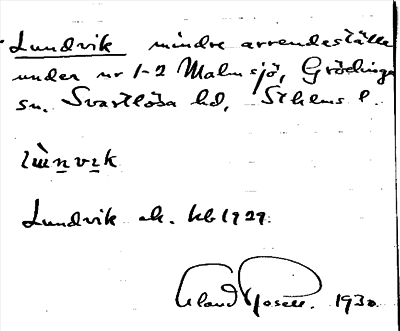 Lundvik mindre arrendeställe
under nr 1-2 Malmsjö, Grödinge
sn. Svartlösa hd, Sthlms l.
Lundvik ek. kb 1929.
1930